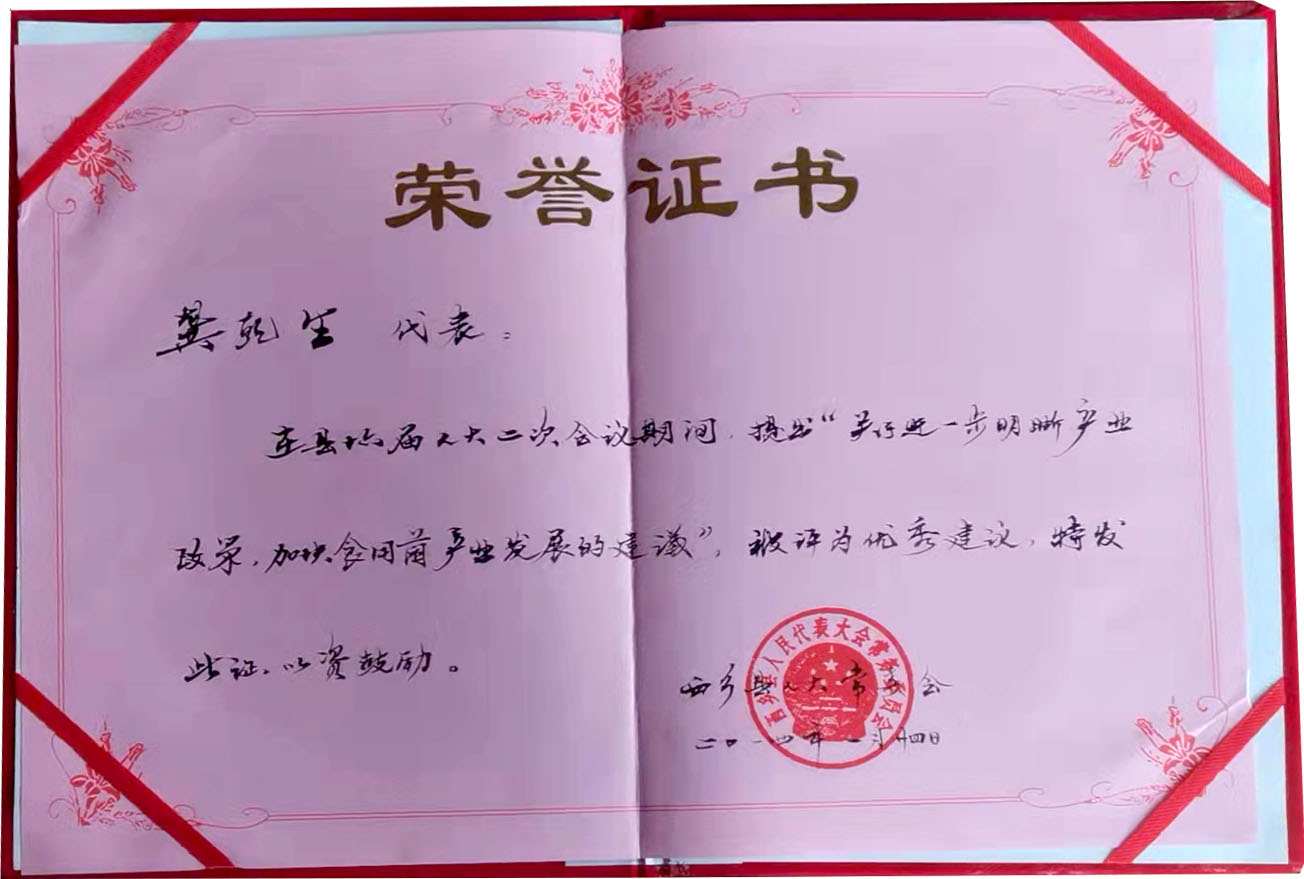 荣誉证书
龚乾生 代表：
在县十六届人大二次会议期间，提出“关于进一步明晰产业
政策，加快食用菌产业发展的建议”，被评为优秀建议，特发
此证，以资鼓励。
西乡县人大常委会
西乡县人民代表大会常务委员会
二〇一四年一月廿四日